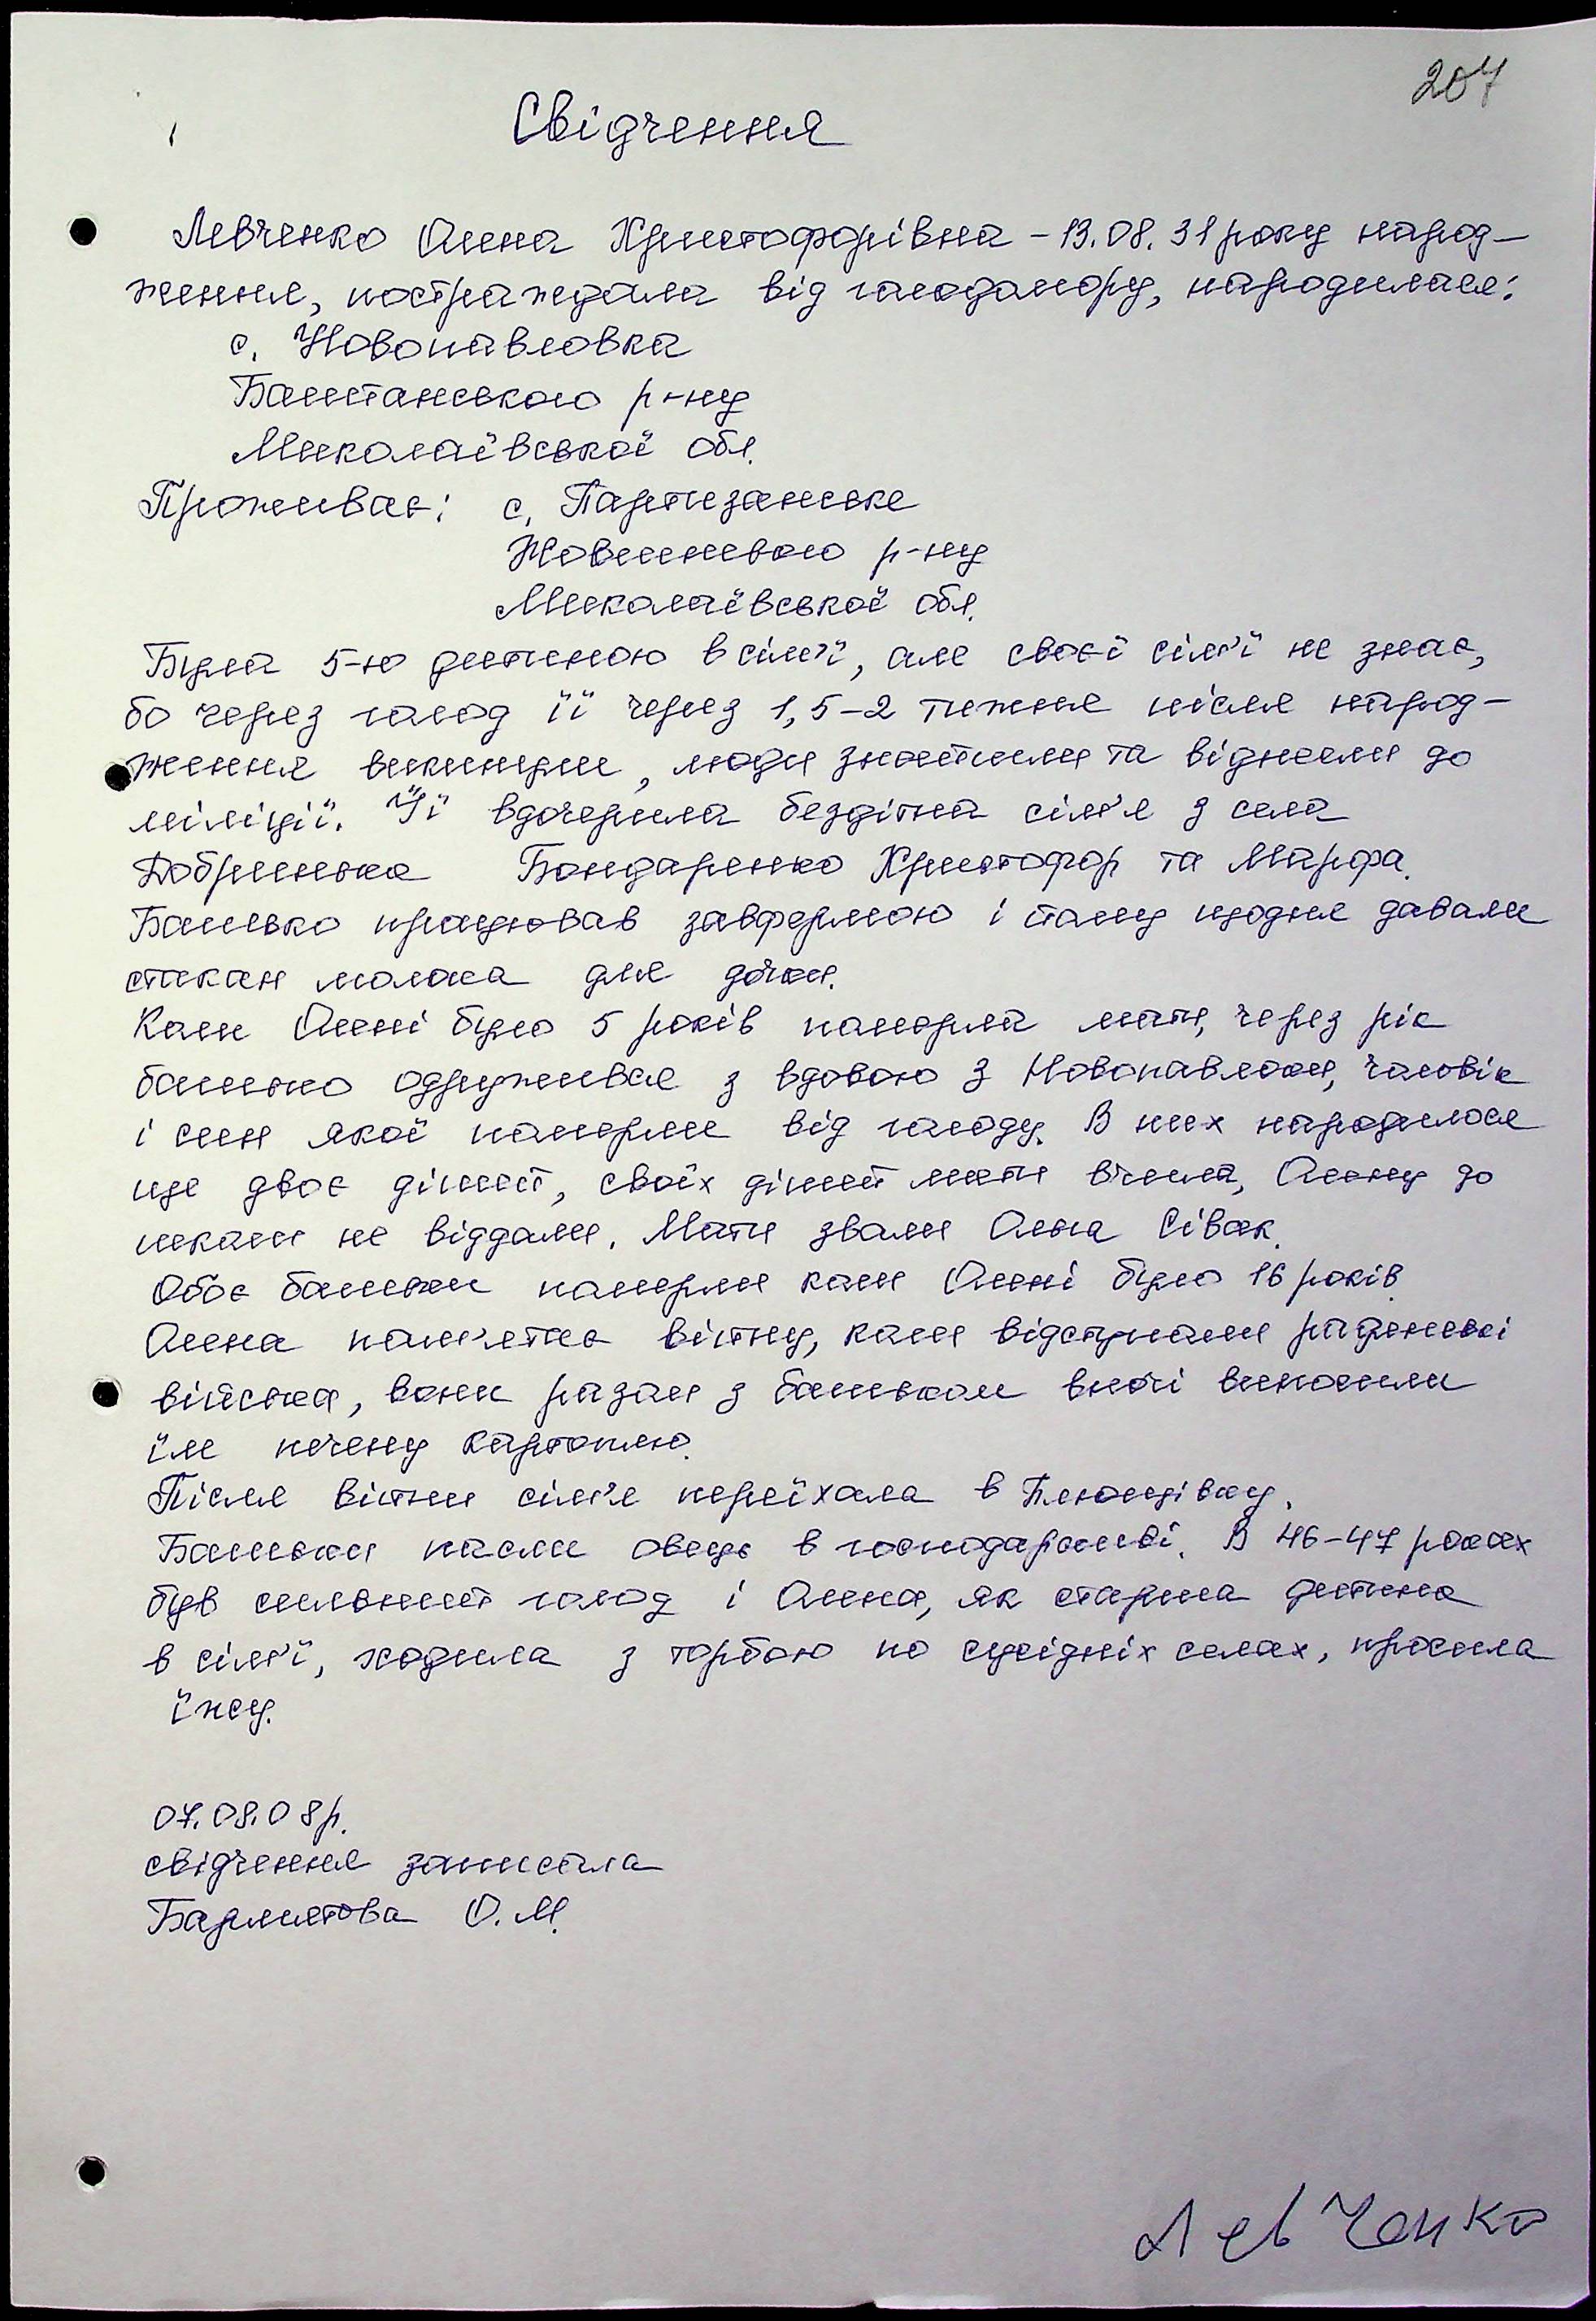 207
Свідчення
Левченко Анна Христофорівна – 13.08.31 року народ-
ження, постраждала від голодомору, народилася:
с. Новопавловка
Баштанського р-ну
Миколаївської обл.
Проживає: с. Партизанське
Жовтневого р-ну
Миколаївської обл.
Була 5-ю дитиною в сім'ї, але своєї сім'ї не знає,
бо через голод її через 1,5-2 тижня після народ-
ження викинули, люди знайшли та віднесли до
міліції. Її вдочерила бездітна сім'я з села
Добринька Бондаренко Христофор та Марфа.
Батько працював завфермою і йому щодня давали
стакан молока для дочки.
Коли Анні було 5 років померла мати, через рік
батько одружився з вдовою з Новопавловки, чоловік
і син якої померли від голоду. В них народилося
ще двоє дітей, своїх дітей мати вчила, Анну до
школи не віддали. Мати звали Ольга Сівак.
Обоє батьки померли коли Анні було 16 років.
Анна пам'ятає війну, коли відступали радянські
війська, вони разом з батьком вночі виносили
їм печену картоплю.
Після війни сім'я переїхала в Плющівку.
Батьки пасли овець в господарстві. В 46-47 роках
був сильний голод і Анна, як старша дитина
в сім'ї, ходила з торбою по сусідніх селах, просила
їжу.
07.08.08р.
свідчення записала
О.М.
Левченко